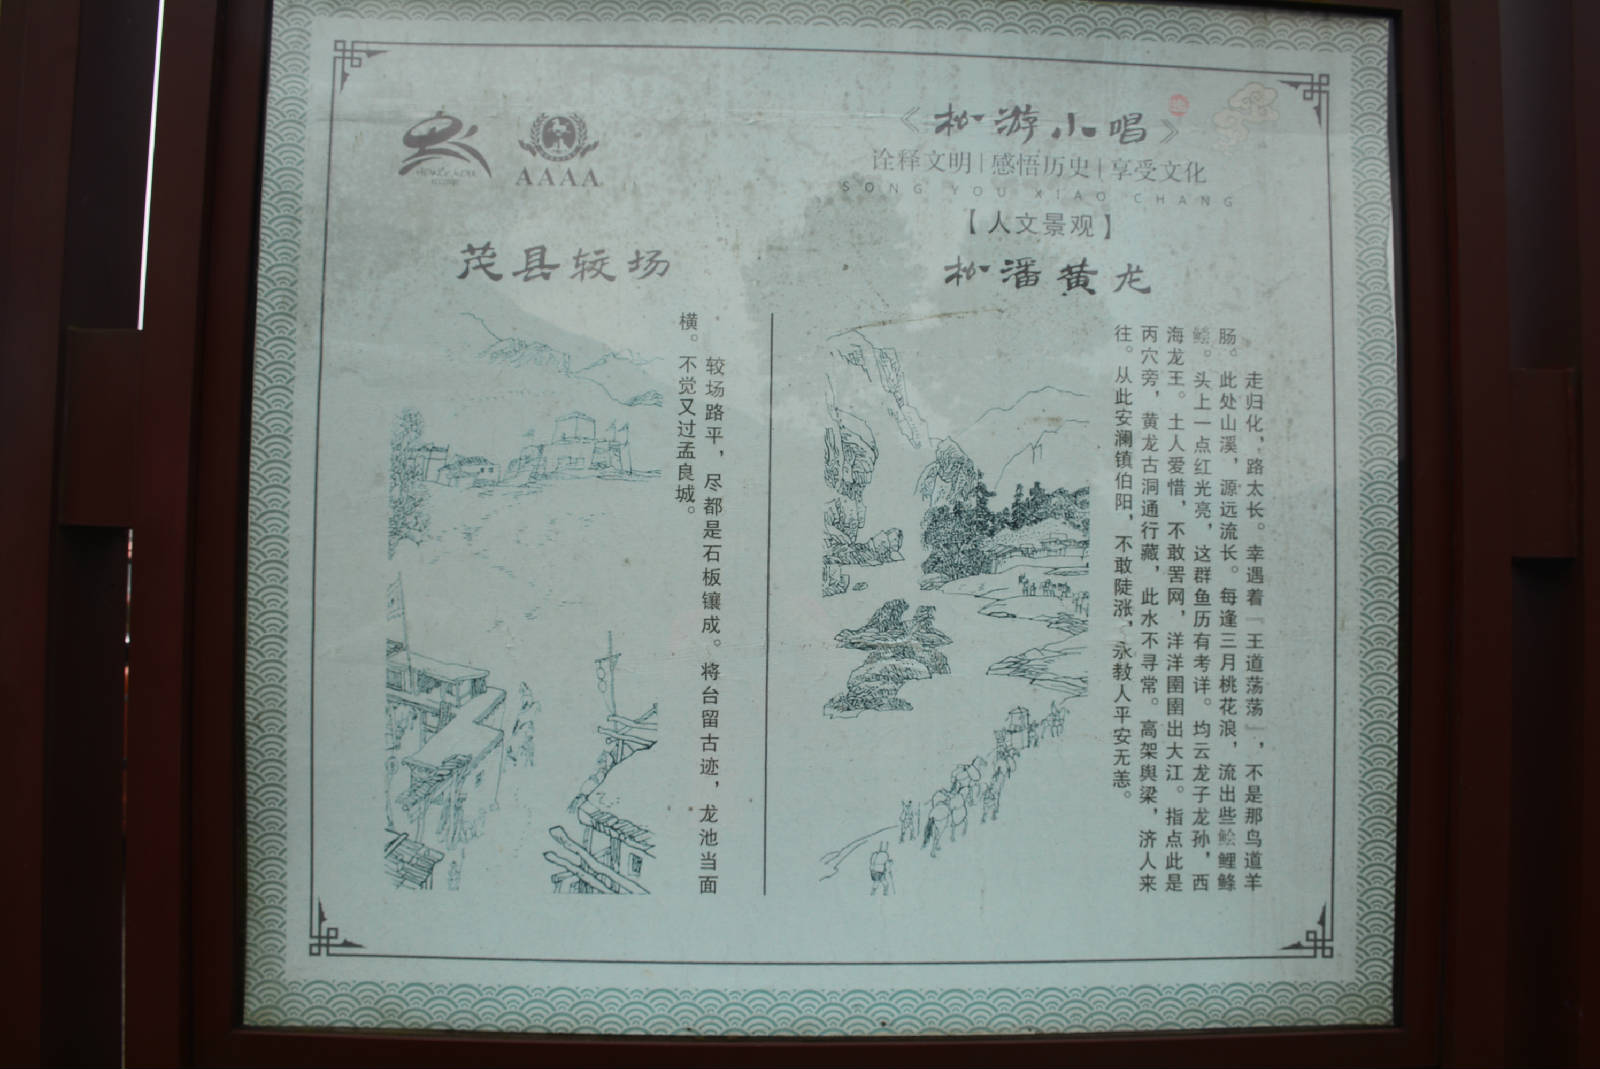 《松游小唱》
诠释文明|感悟历史|享受文化
SONG YOU XIAO CHANG
【人文景观】
松潘黄龙
走归化，路太长。幸遇着『王道荡荡』，不是那鸟道羊
肠。此处山溪，源远流长。每逢三月桃花浪，流出些鲙鲤鳞
鲿。头上一点红光亮，这群鱼历有考详。均云龙子龙孙，西
海龙王。土人爱惜，不敢罟网，洋洋圉圉出大江。指点此是
丙穴旁，黄龙古洞通行藏，此水不寻常。高架舆梁，济人来
往。从此安澜镇伯阳，不敢陡涨，永教人平安无恙。
AAAA
茂县较场
较场路平，尽都是石板镶成。将台留古迹，龙池当面
横。不觉又过孟良城。